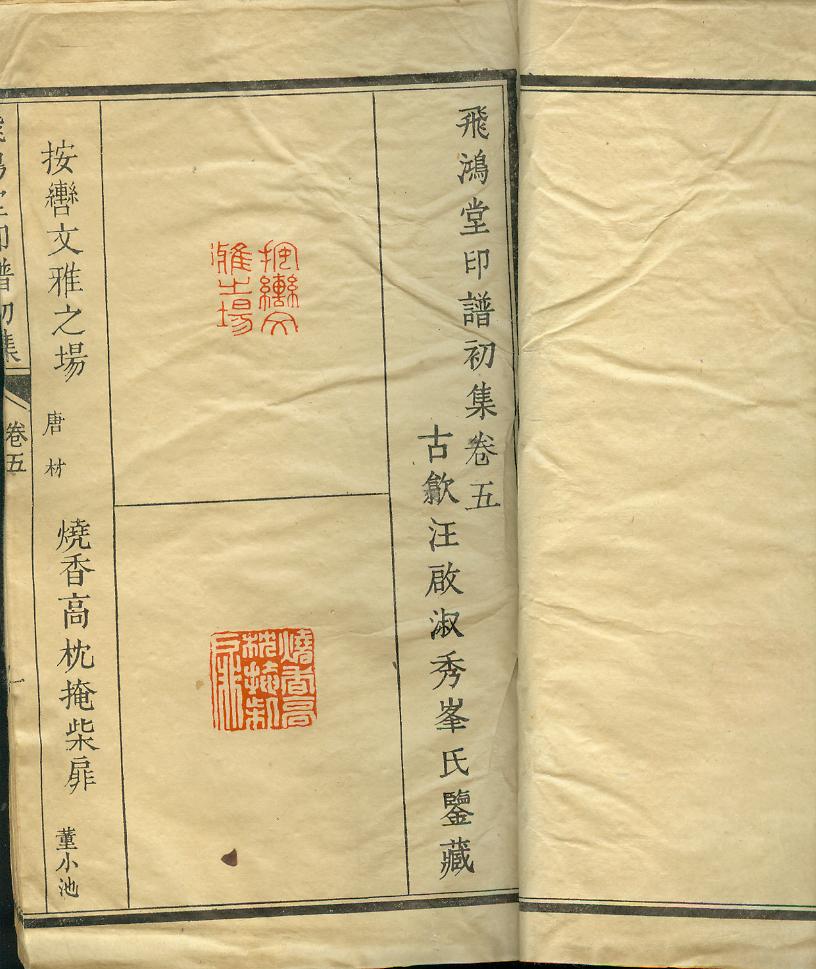 飛鴻堂印譜初集卷五
古歙汪啟淑秀峯氏鑒藏
按轡文雅之場
燒香高枕掩柴扉
按轡文雅之場 唐材
燒香高枕掩柴扉 董小池
飛鴻堂印譜初集 卷五 一